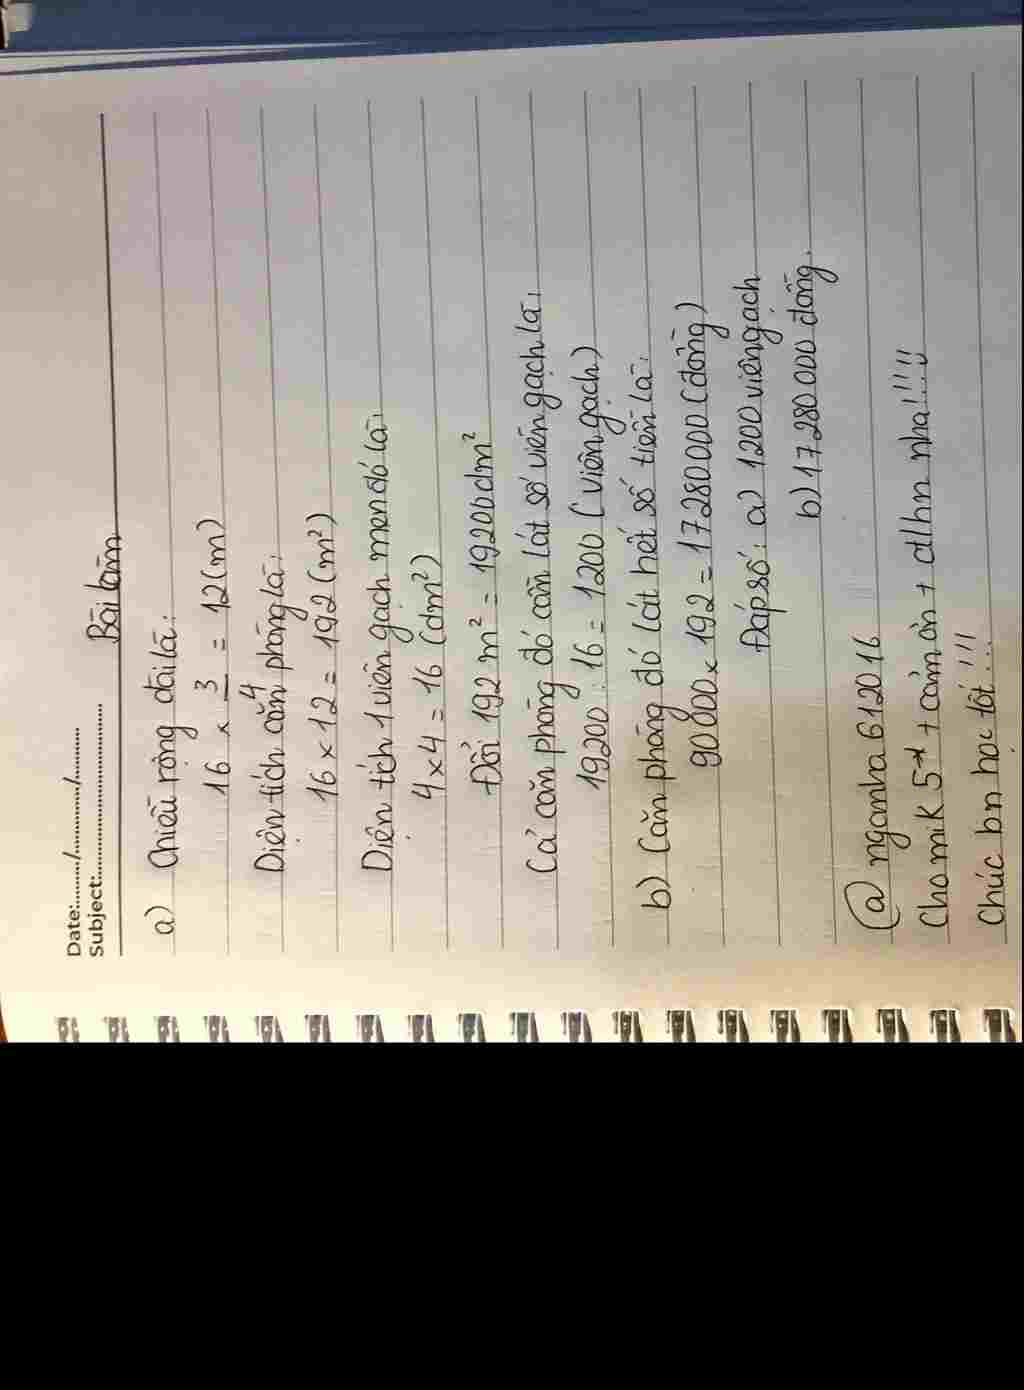 Date:........./............/.........
Subject:..............................
Bài làm
a) Chiều rộng dài là:
16 × 3/4 = 12 (m)
Diện tích căn phòng là:
16 × 12 = 192 (m²)
Diện tích 1 viên gạch men đó là:
4 × 4 = 16 (dm²)
Đổi 192 m² = 19200 dm²
Cả căn phòng đó cần lát số viên gạch là:
19200 : 16 = 1200 (viên gạch)
b) Căn phòng đó lát hết số tiền là:
90 000 × 192 = 17 280 000 (đồng)
Đáp số: a) 1200 viên gạch
b) 17 280 000 đồng.
@ nganha612016
Cho mik 5* + cảm ơn + ctlhn nha!!!!
Chúc bn học tốt!!!